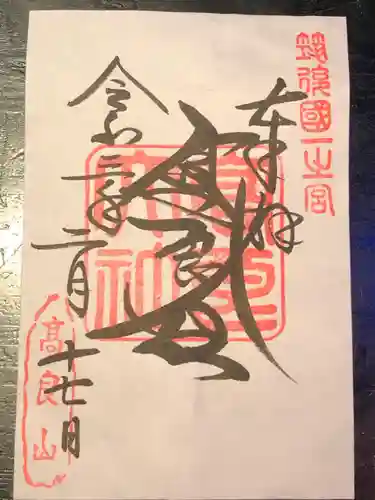 筑後國一之宮
奉拝
高良大社
令和二年
二月
十七日
高良山